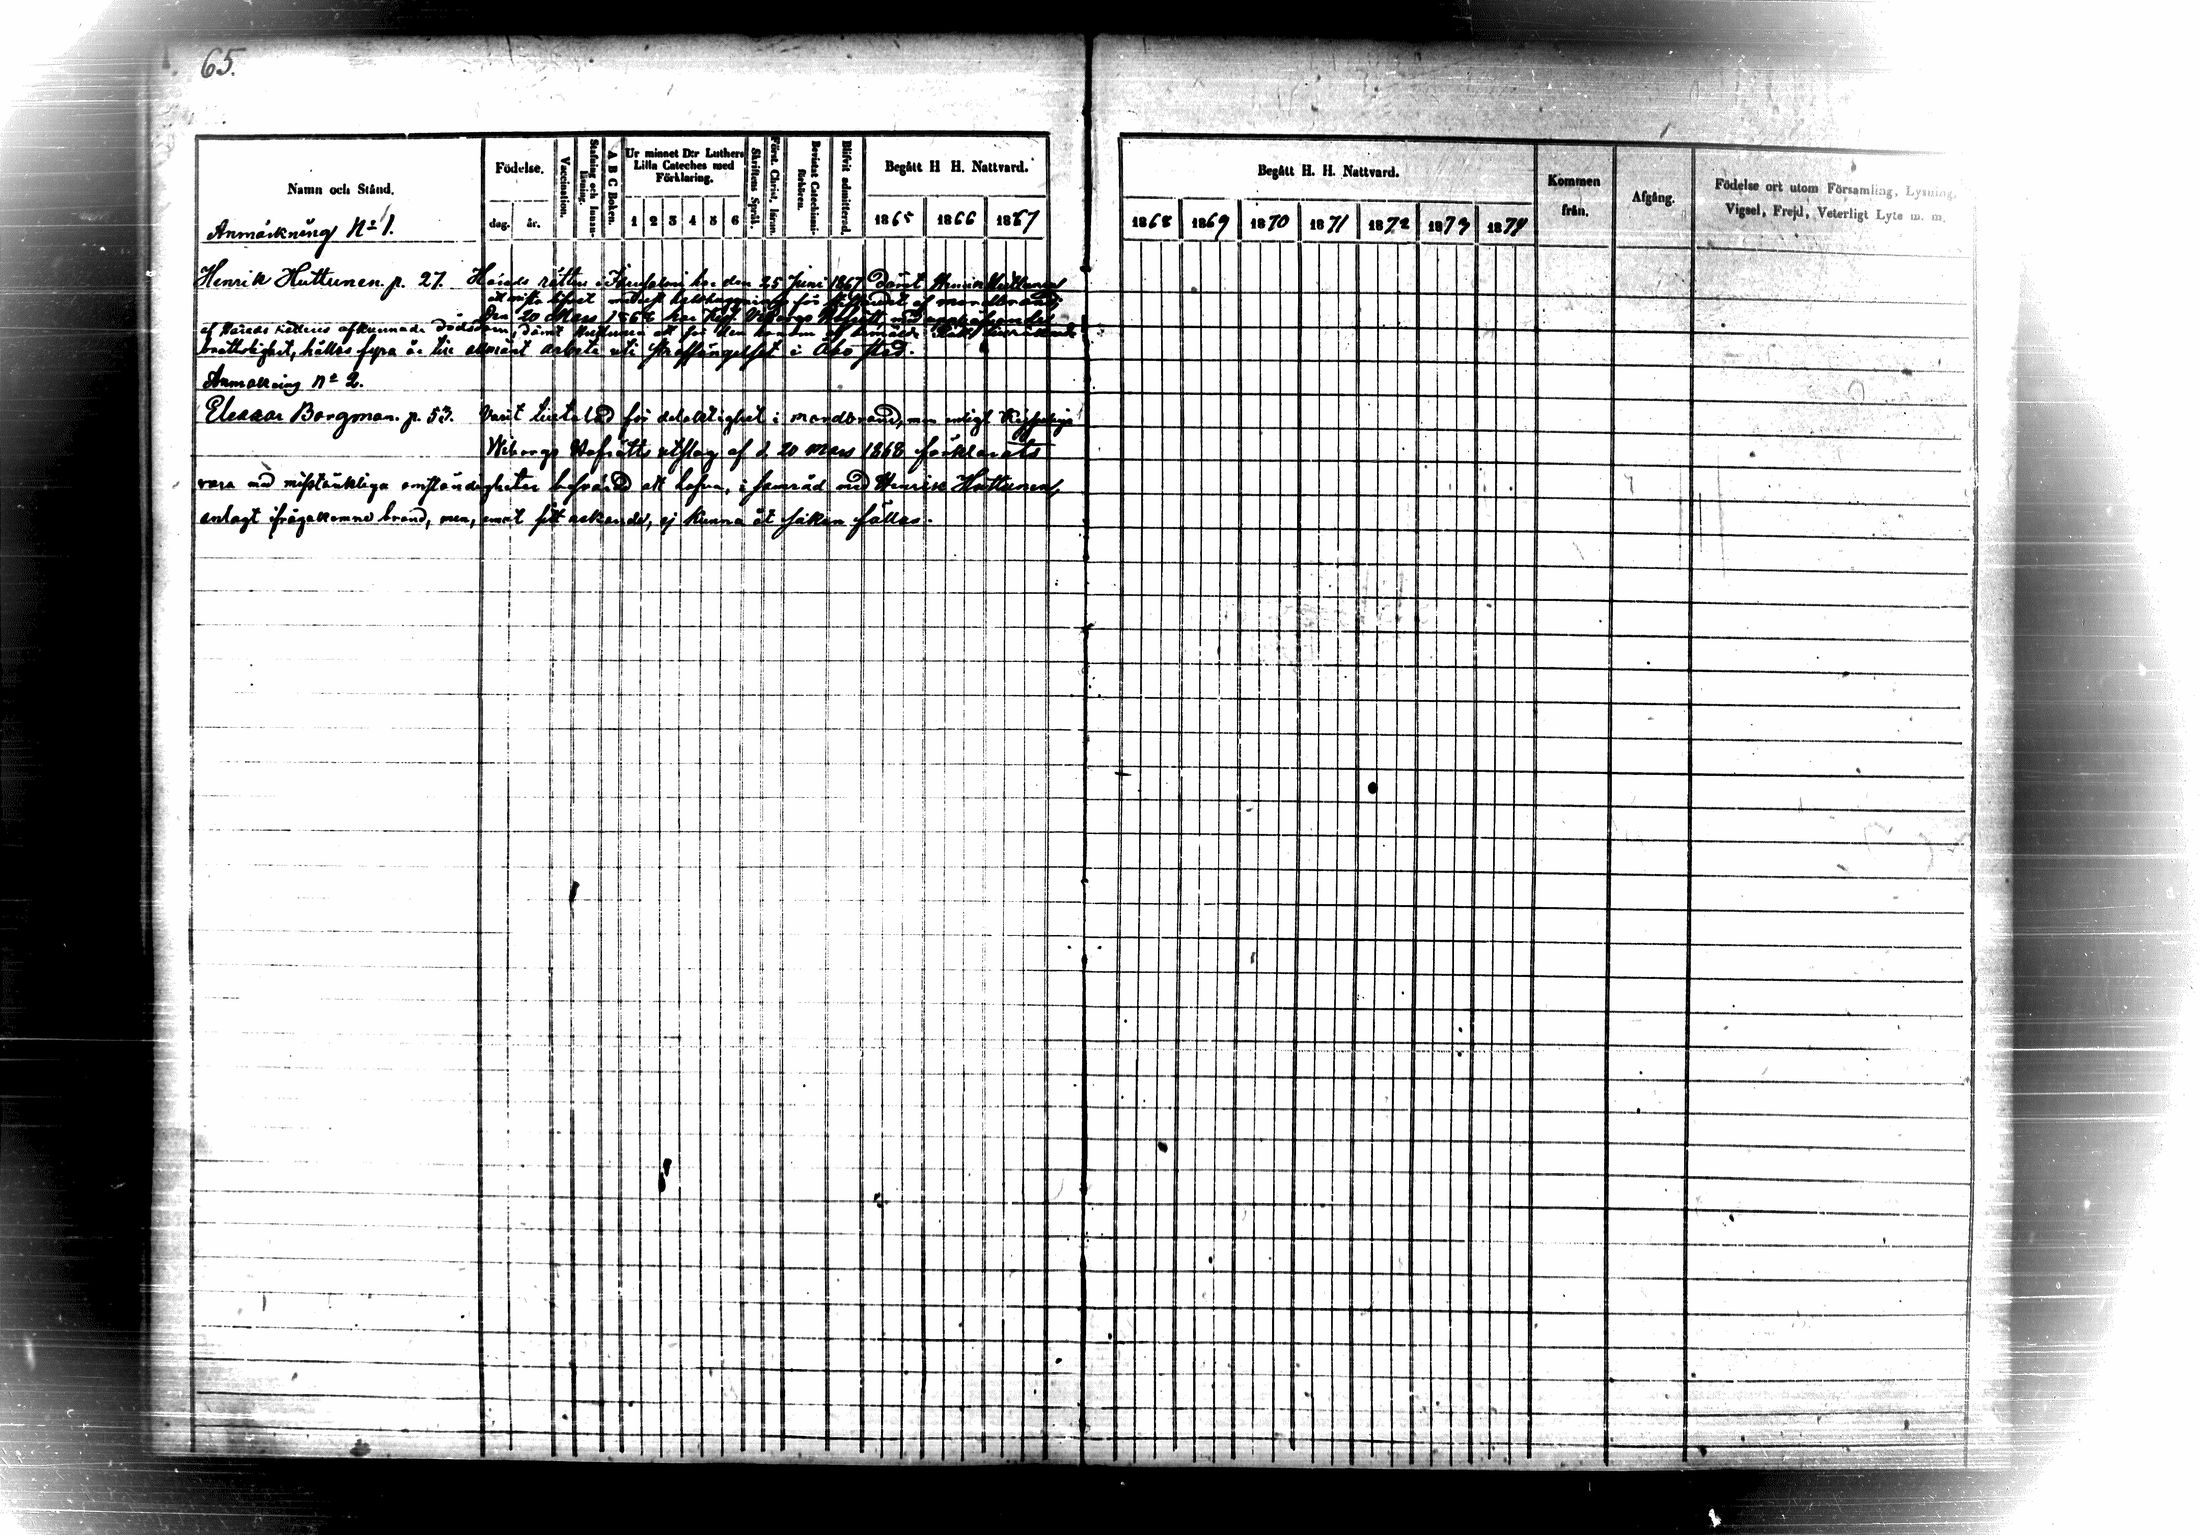 65.
Namn och Stånd.
Födelse.
dag. år.
Vaccination.
Stafning och Innanläsning.
A B C Boken.
Ur minnet D:r Luthers
Lilla Cateches med
Förklaring.
1 2 3 4 5 6
Skriftens Språk.
Först. Christ. läran.
Bevistat Catechismi-förhören.
Blifvit admitterad.
Begått H H. Nattvard.
1865 1866 1867
Begått H. H. Nattvard.
1868 1869 1870 1871 1872 1873 1874
Kommen
från.
Afgång.
Födelse ort utom Församling, Lysning,
Vigsel, Frejd, Veterligt Lyte m. m.
Anmärkning No 1.
Henrik Huttunen. p. 27. Härads rätten i har den 25 Juni 1867 dömt Henrik Huttunen
att mista lifvet medelst halshuggning för af mordbrand;
Den 20 Mars 1868 har Kejs. Wiborgs Hofrätt, med
af Härads Rättens afkunnade dödsdom, dömt Huttunen att för
brottslighet, hållas fyra år till allmänt arbete uti straffängelset i Åbo stad.
Anmärkning No 2.
Eleazar Borgman. p. 53. Varit tilltalad för delaktighet i mordbrand, men enligt Kejserliga
Wiborgs Hofrätts utslag af d. 20 Mars 1868 förklarats
vara med misstänkliga omständigheter besvärad att hafva, i samråd med Henrik Huttunen,
anlagt ifrågakomne brand, men, emot sitt nekande, ej kunna åt saken fällas.